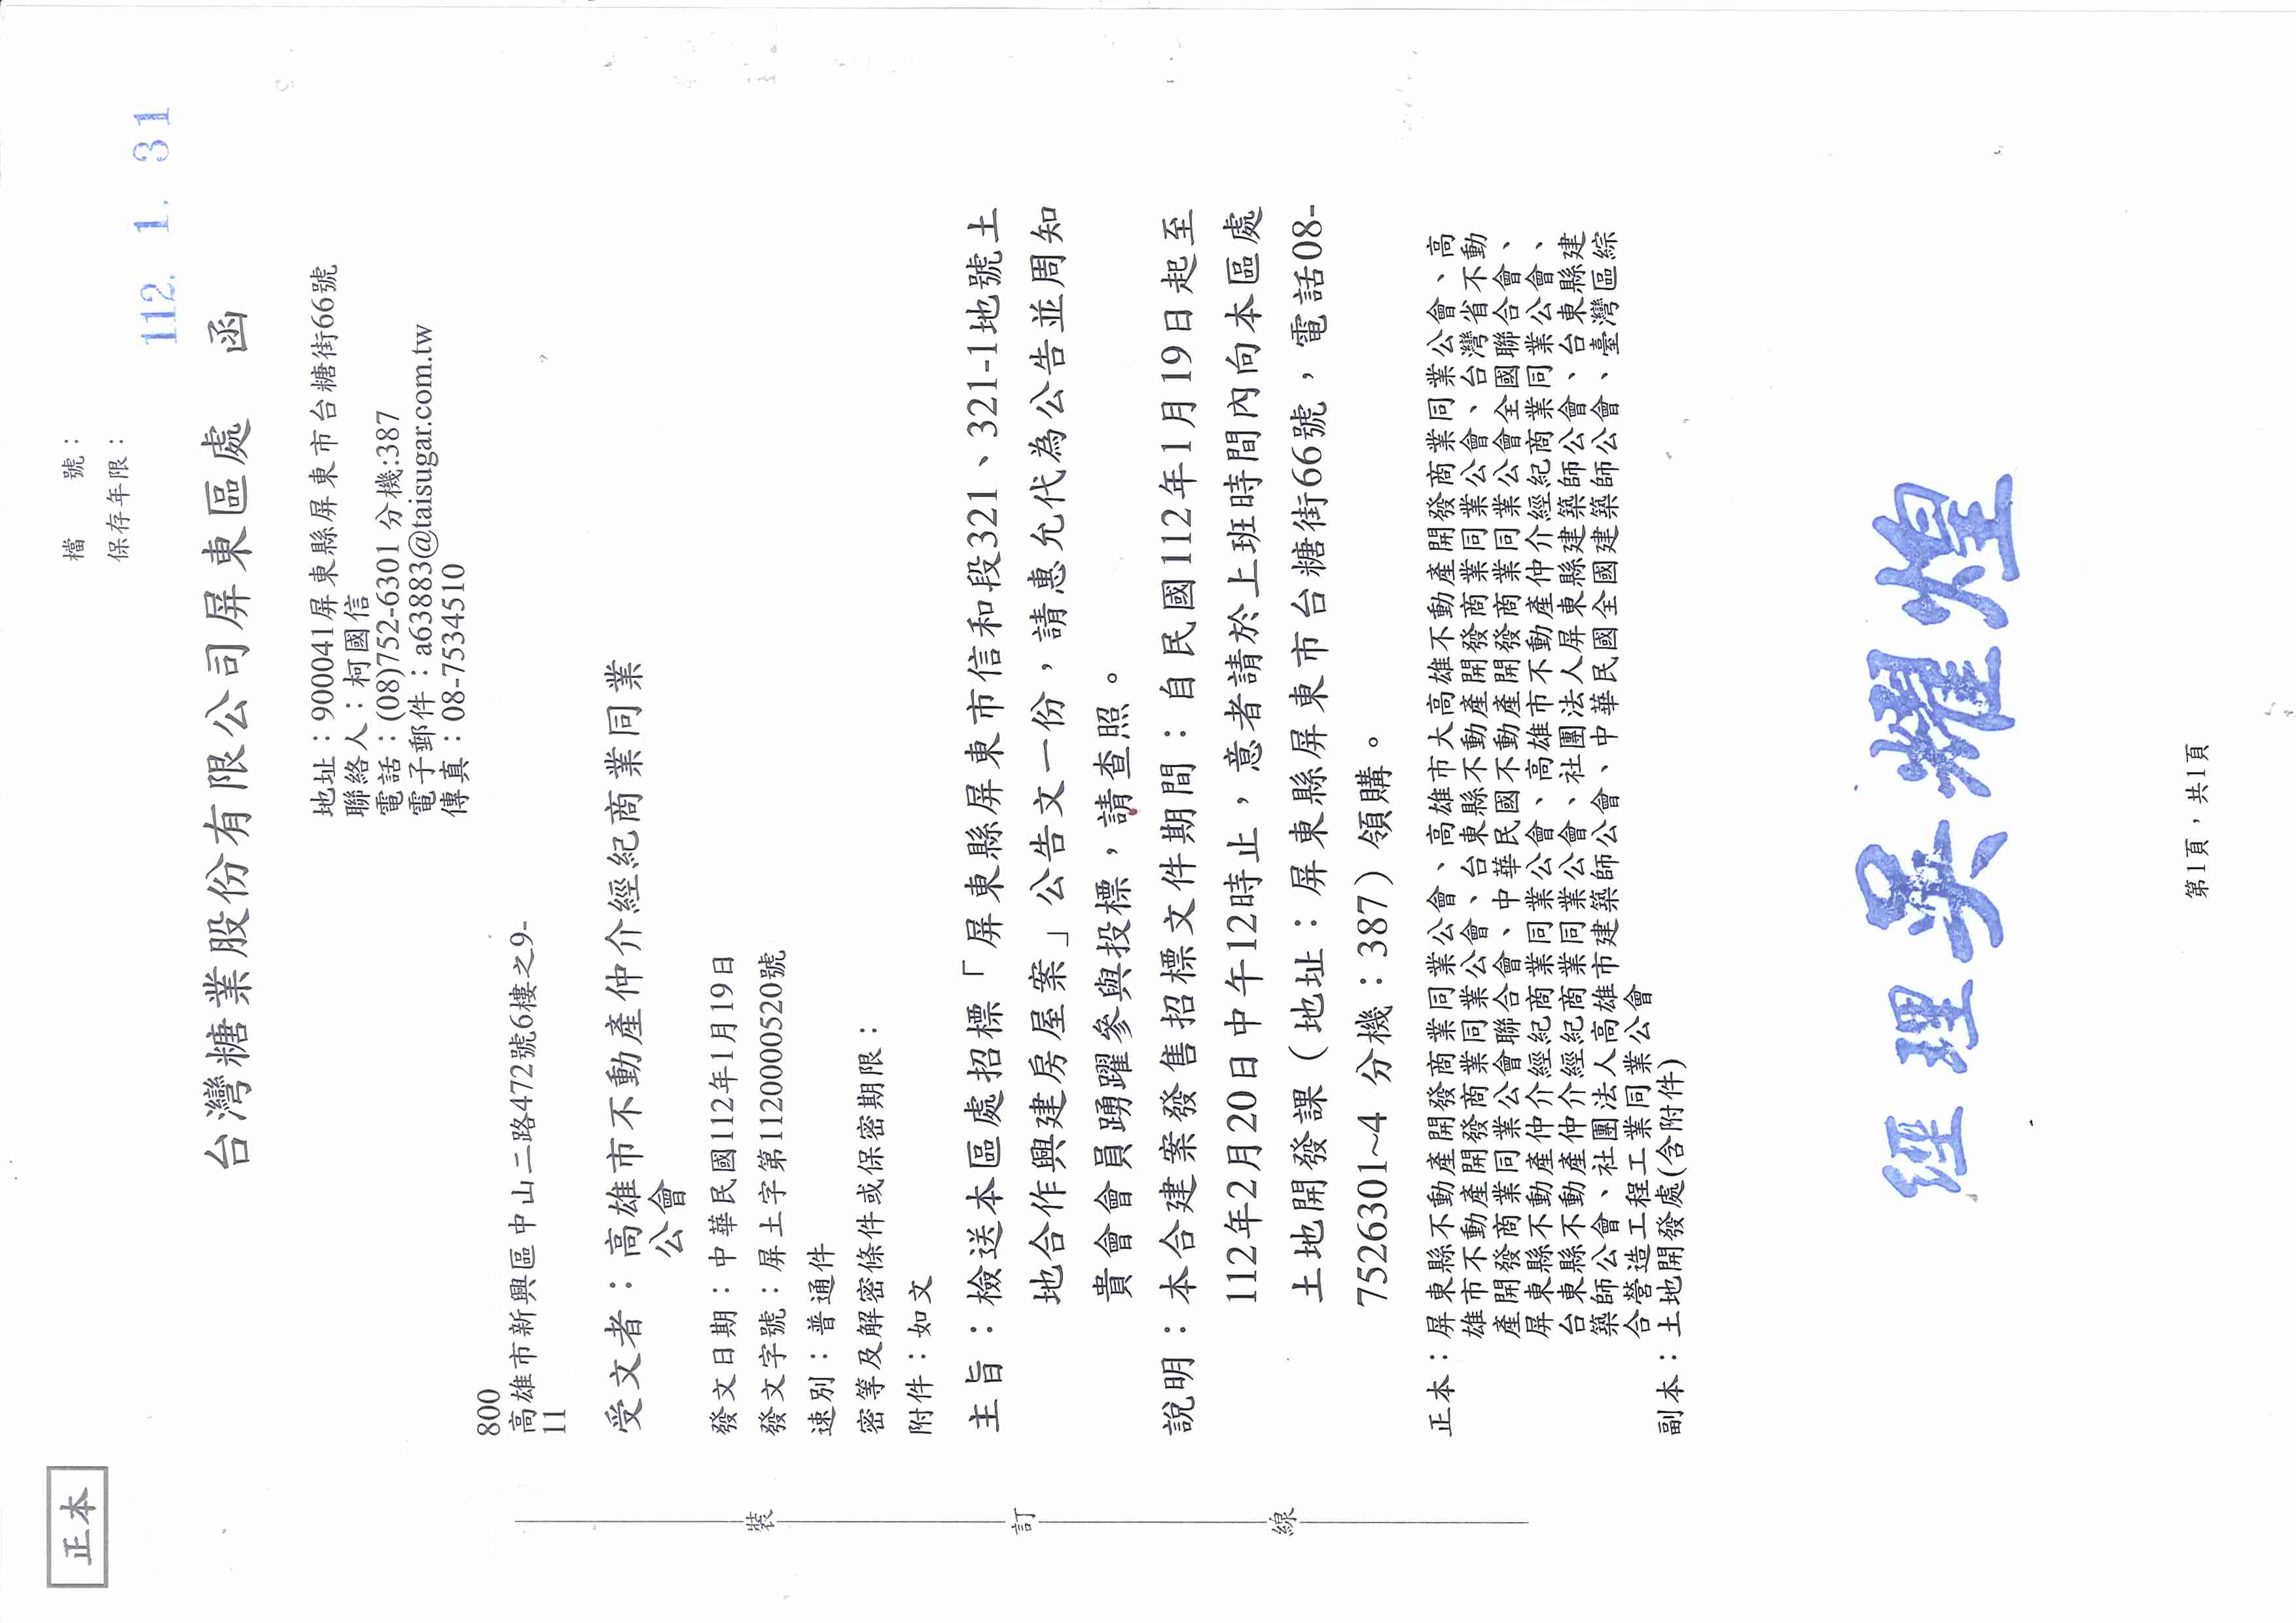 正本
檔　　號：
保存年限：
112. 1. 31
台灣糖業股份有限公司屏東區處　函
地址：900041屏東縣屏東市台糖街66號
聯絡人：柯國信
電話：(08)752-6301 分機:387
電子郵件：a63883@taisugar.com.tw
傳真：08-7534510
800
高雄市新興區中山二路472號6樓之9-
11
受文者：高雄市不動產仲介經紀商業同業
公會
發文日期：中華民國112年1月19日
發文字號：屏土字第1120000520號
速別：普通件
密等及解密條件或保密期限：
附件：如文
主旨：檢送本區處招標「屏東縣屏東市信和段321、321-1地號土
地合作興建房屋案」公告文一份，請惠允代為公告並周知
貴會會員踴躍參與投標，請查照。
說明：本合建案發售招標文件期間：自民國112年1月19日起至
112年2月20日中午12時止，意者請於上班時間內向本區處
土地開發課（地址：屏東縣屏東市台糖街66號，電話08-
7526301~4 分機：387）領購。
正本：屏東縣不動產開發商業同業公會、高雄市大高雄不動產開發商業同業公會、高
雄市不動產開發商業同業公會、台東縣不動產開發商業同業公會、台灣省不動
產開發商業同業公會聯合會、中華民國不動產開發商業同業公會全國聯合會、
屏東縣不動產仲介經紀商業同業公會、高雄市不動產仲介經紀商業同業公會、
台東縣不動產仲介經紀商業同業公會、社團法人屏東縣建築師公會、台東縣建
築師公會、社團法人高雄市建築師公會、中華民國全國建築師公會、臺灣區綜
合營造工程工業同業公會
副本：土地開發處(含附件)
經理吳耀煌
裝
訂
線
第1頁，共1頁